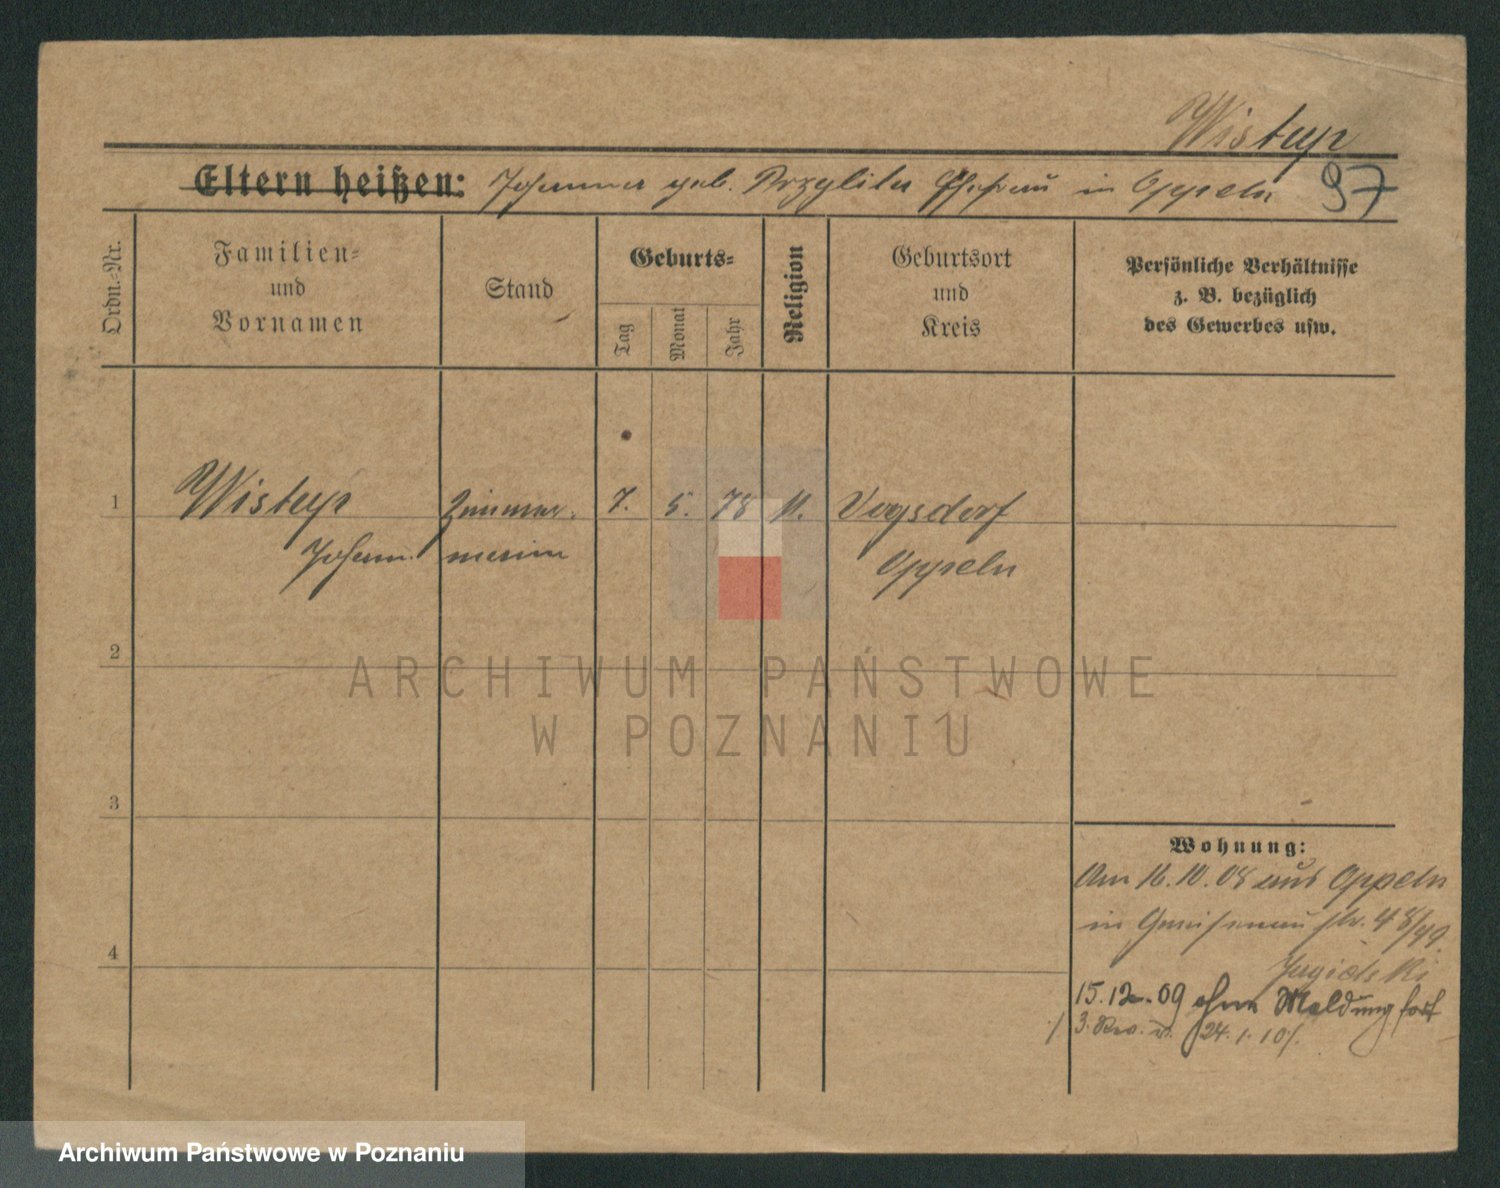 Wistup
Eltern heißen: Johanna geb. in Oppeln 97
Ordn.-Nr.
Familien-
und
Vornamen
Stand
Geburts-
Tag
Monat
Jahr
Religion
Geburtsort
und
Kreis
Persönliche Verhältnisse
z. B. bezüglich
des Gewerbes usw.
1 Wistup Zimmer- 7. 5. 78 Vogsdorf
Johann Oppeln
2
3
4
Wohnung:
Am 16.10.08 aus Oppeln
in Gneisenau str. 48/49.
15.12.09 ohne Meldung fort
3. Rev. 24.1.10/.
ARCHIWUM PAŃSTWOWE
W POZNANIU
Archiwum Państwowe w Poznaniu